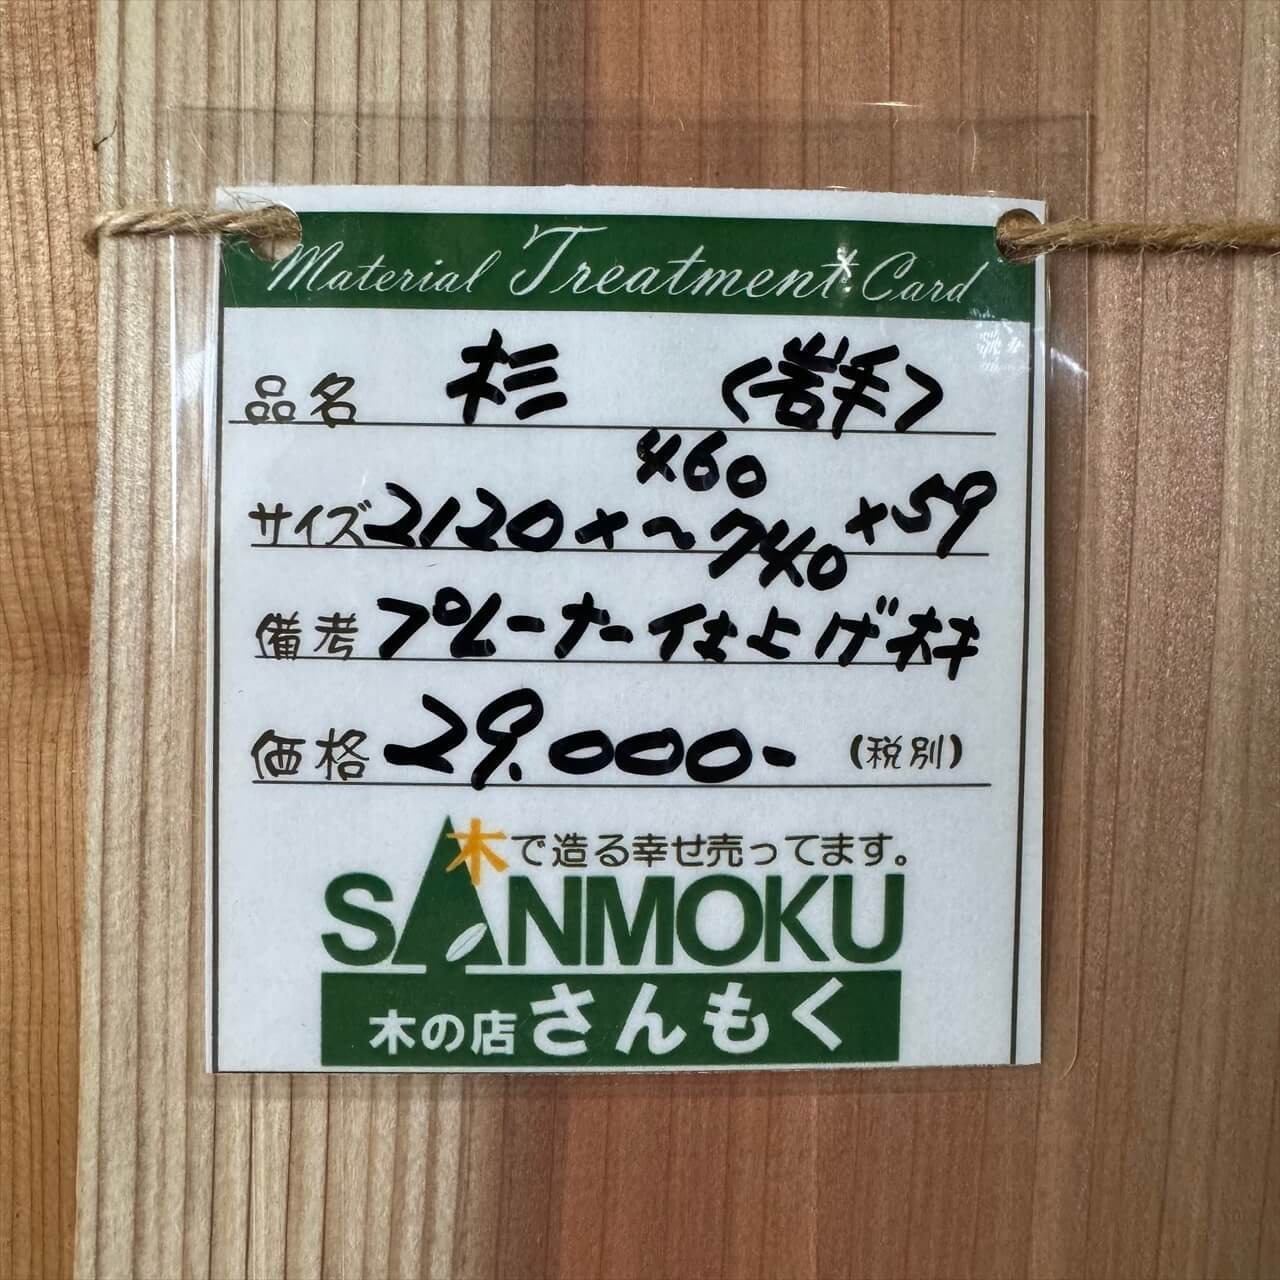 Material Treatment Card
品名 杉 (岩手)
サイズ 2120×460~740×59
備考 プレーナー仕上げ材
価格 29.000- (税別)
木で造る幸せ売ってます。
SANMOKU
木の店さんもく